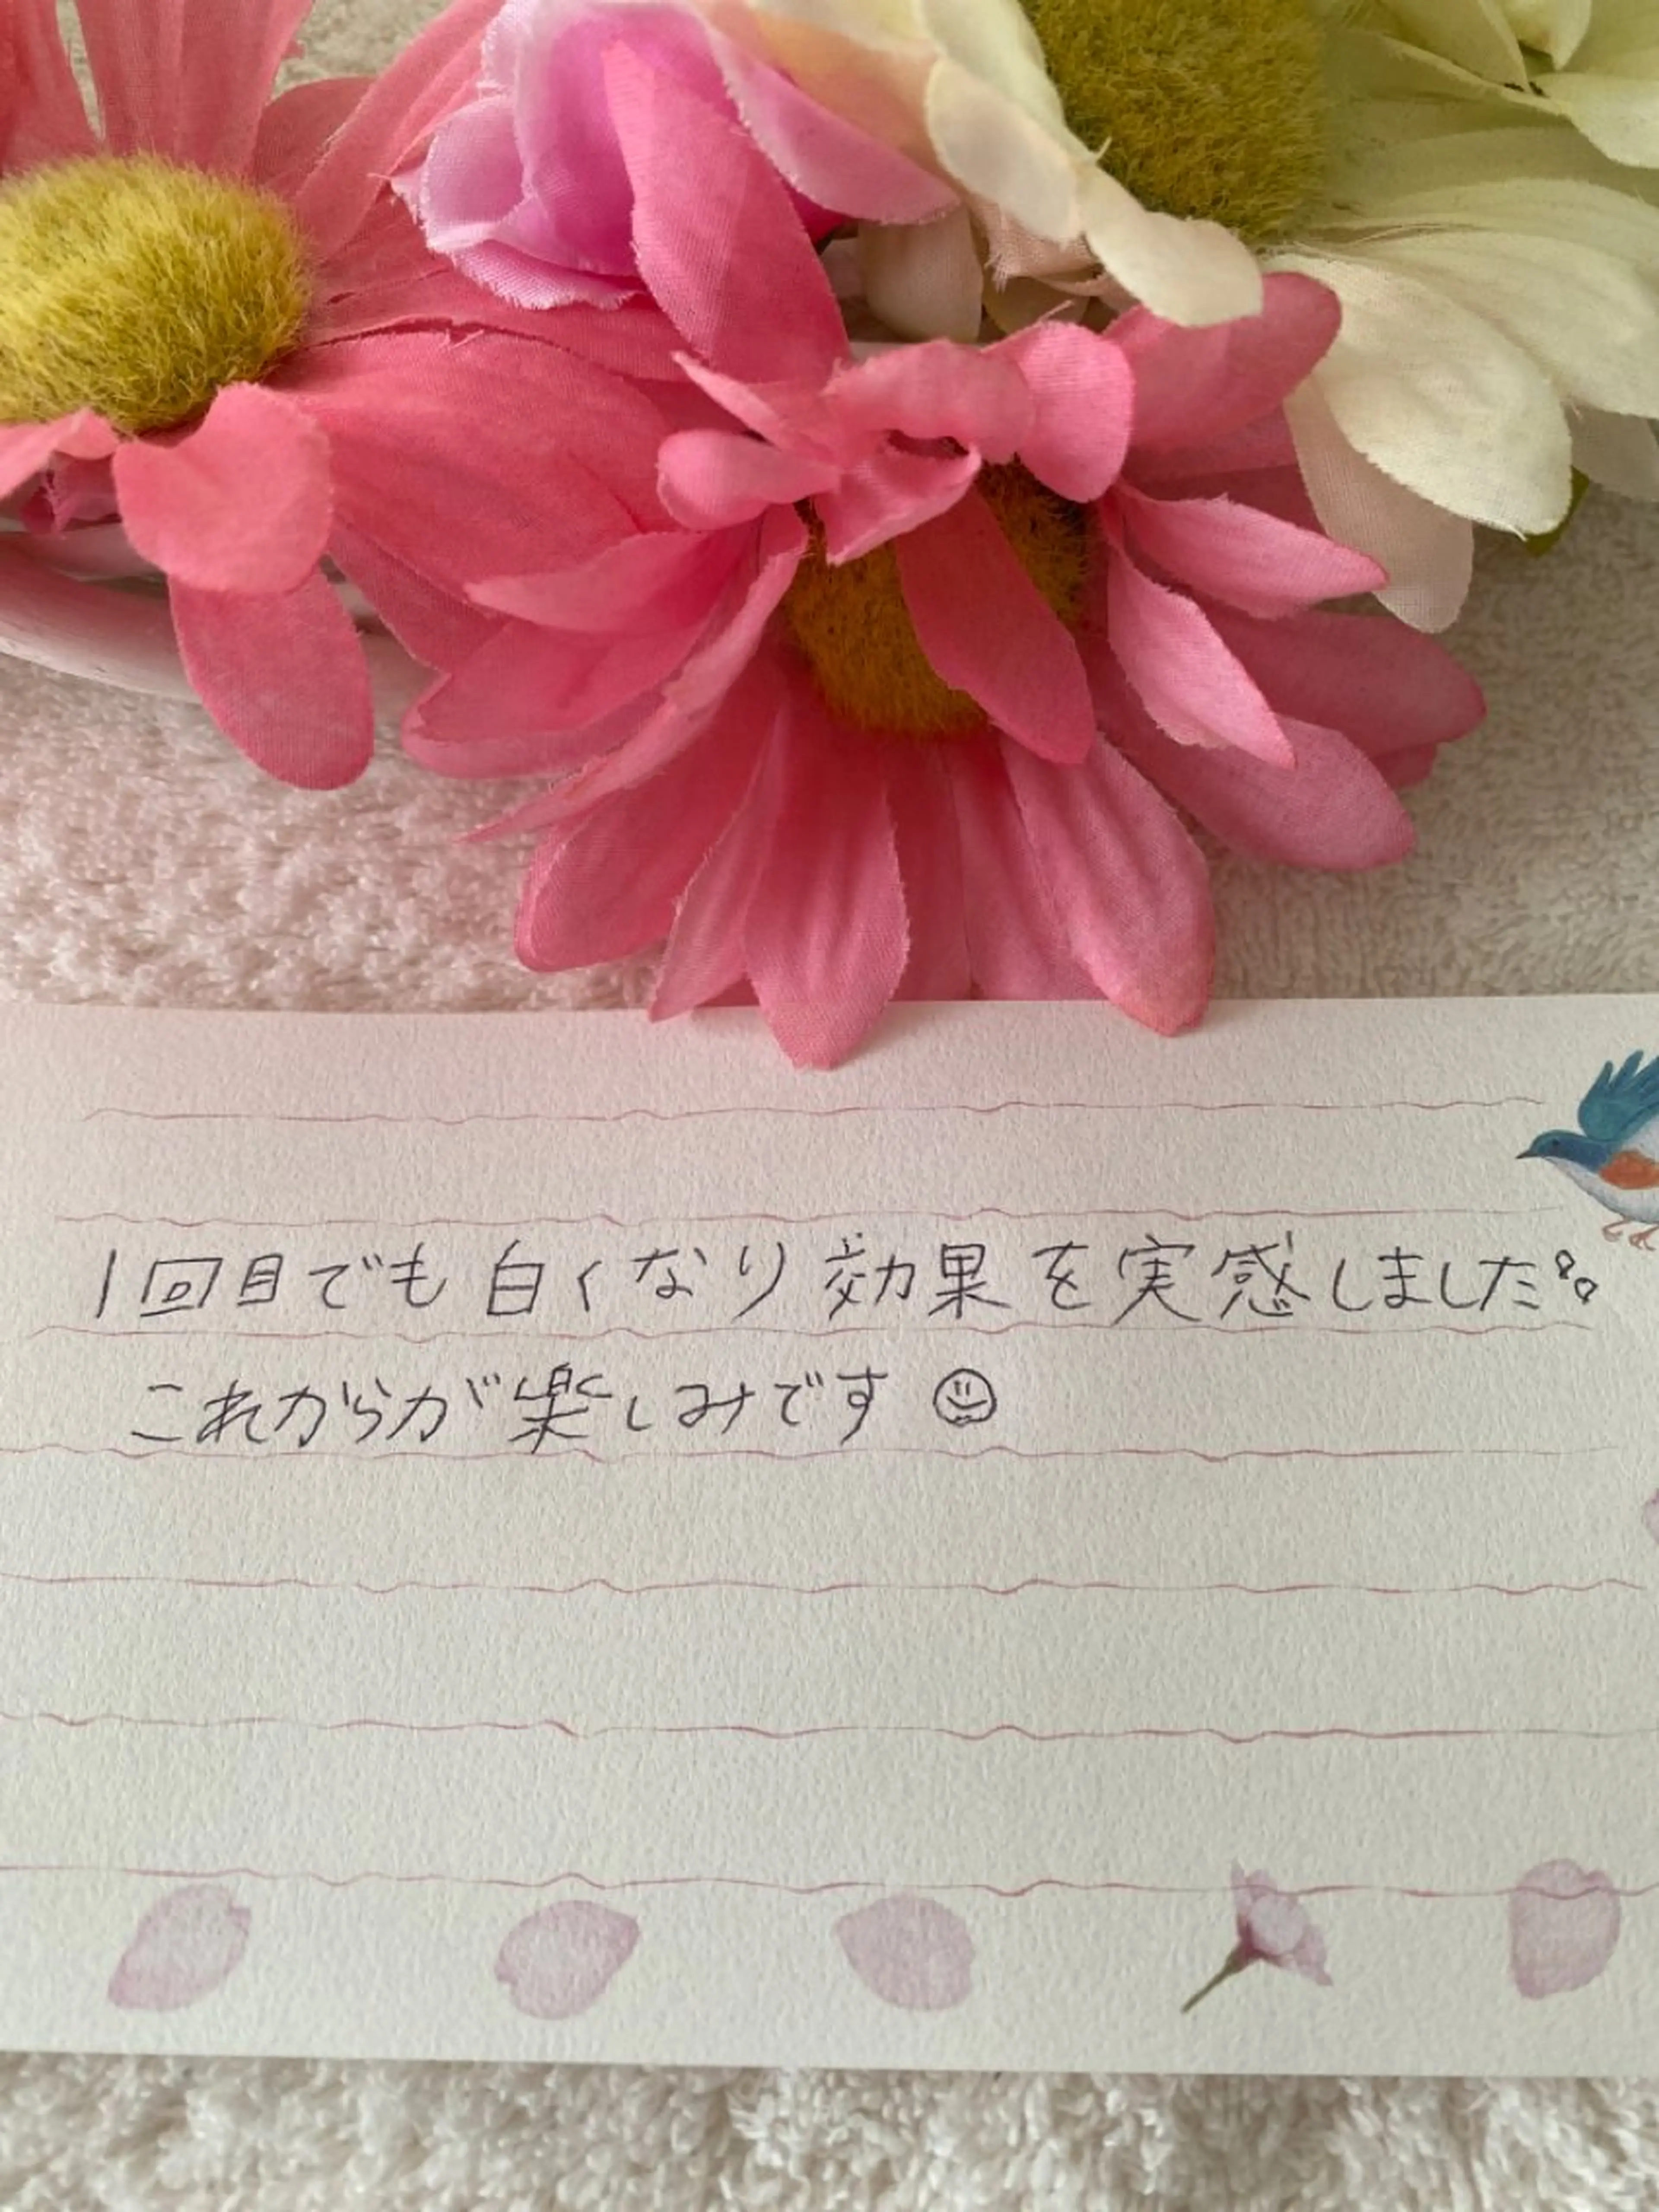 1回目でも白くなり効果を実感しました。
これからが楽しみです☺